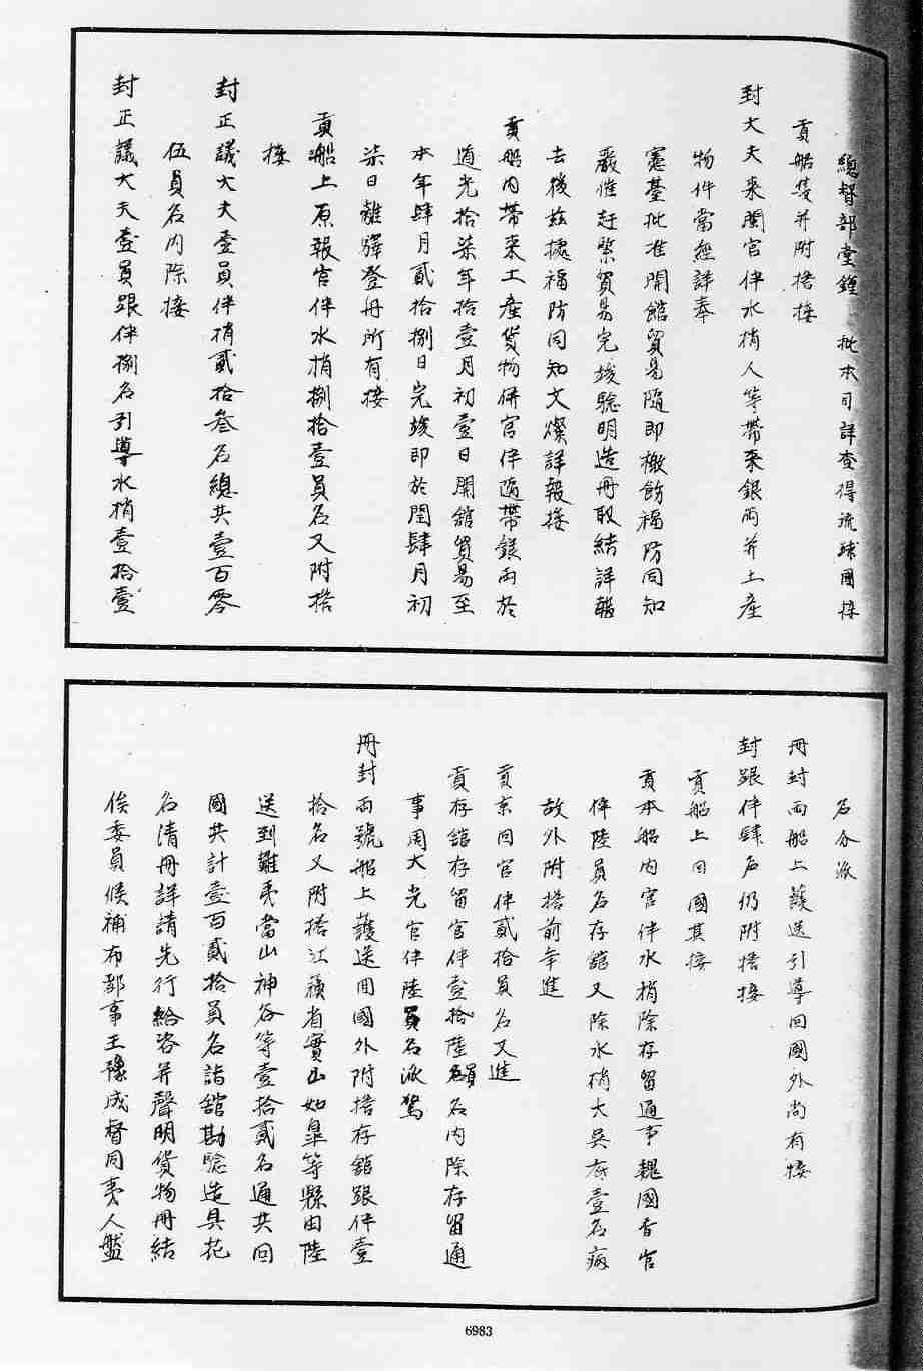 總督部堂鍾　批本司詳查得琉球國接
貢船隻并附搭接
封大夫來閩官伴水梢人等帶來銀兩并土產
物件當經詳奉
憲臺批准開館貿易隨即檄飭福防同知
嚴催赶緊貿易完竣驗明造冊取結詳報
去後茲據福防同知文燦詳報接
貢船內帶來土產貨物併官伴隨帶銀兩於
道光拾柒年拾壹月初壹日開館貿易至
本年肆月貳拾捌日完竣即於閏肆月初
柒日離驛登舟所有接
貢船上原報官伴水梢捌拾壹員名又附搭
接
封正議大夫壹員伴梢貳拾叁名總共壹百零
伍員名內除接
封正議大夫壹員跟伴捌名引導水梢壹拾壹
名分派
冊封兩船上護送引導回國外尚有接
封跟伴肆名仍附搭接
貢船上回國其接
貢本船內官伴水梢除存留通事魏國香官
伴陸員名存館又除水梢大吳屋壹名病
故外附搭前年進
貢京回官伴貳拾員名又進
貢存館存留官伴壹拾陸員名內除存留通
事周大光官伴陸員名派駕
冊封兩號船上護送回國外附搭存館跟伴壹
拾名又附搭江蘇省寶山如皋等縣由陸
送到難夷當山神谷等壹拾貳名通共回
國共計壹百貳拾員名詣館勘驗造具花
名清冊詳請先行給咨并聲明貨物冊結
俟委員候補布部事王豫成督同夷人盤
6983